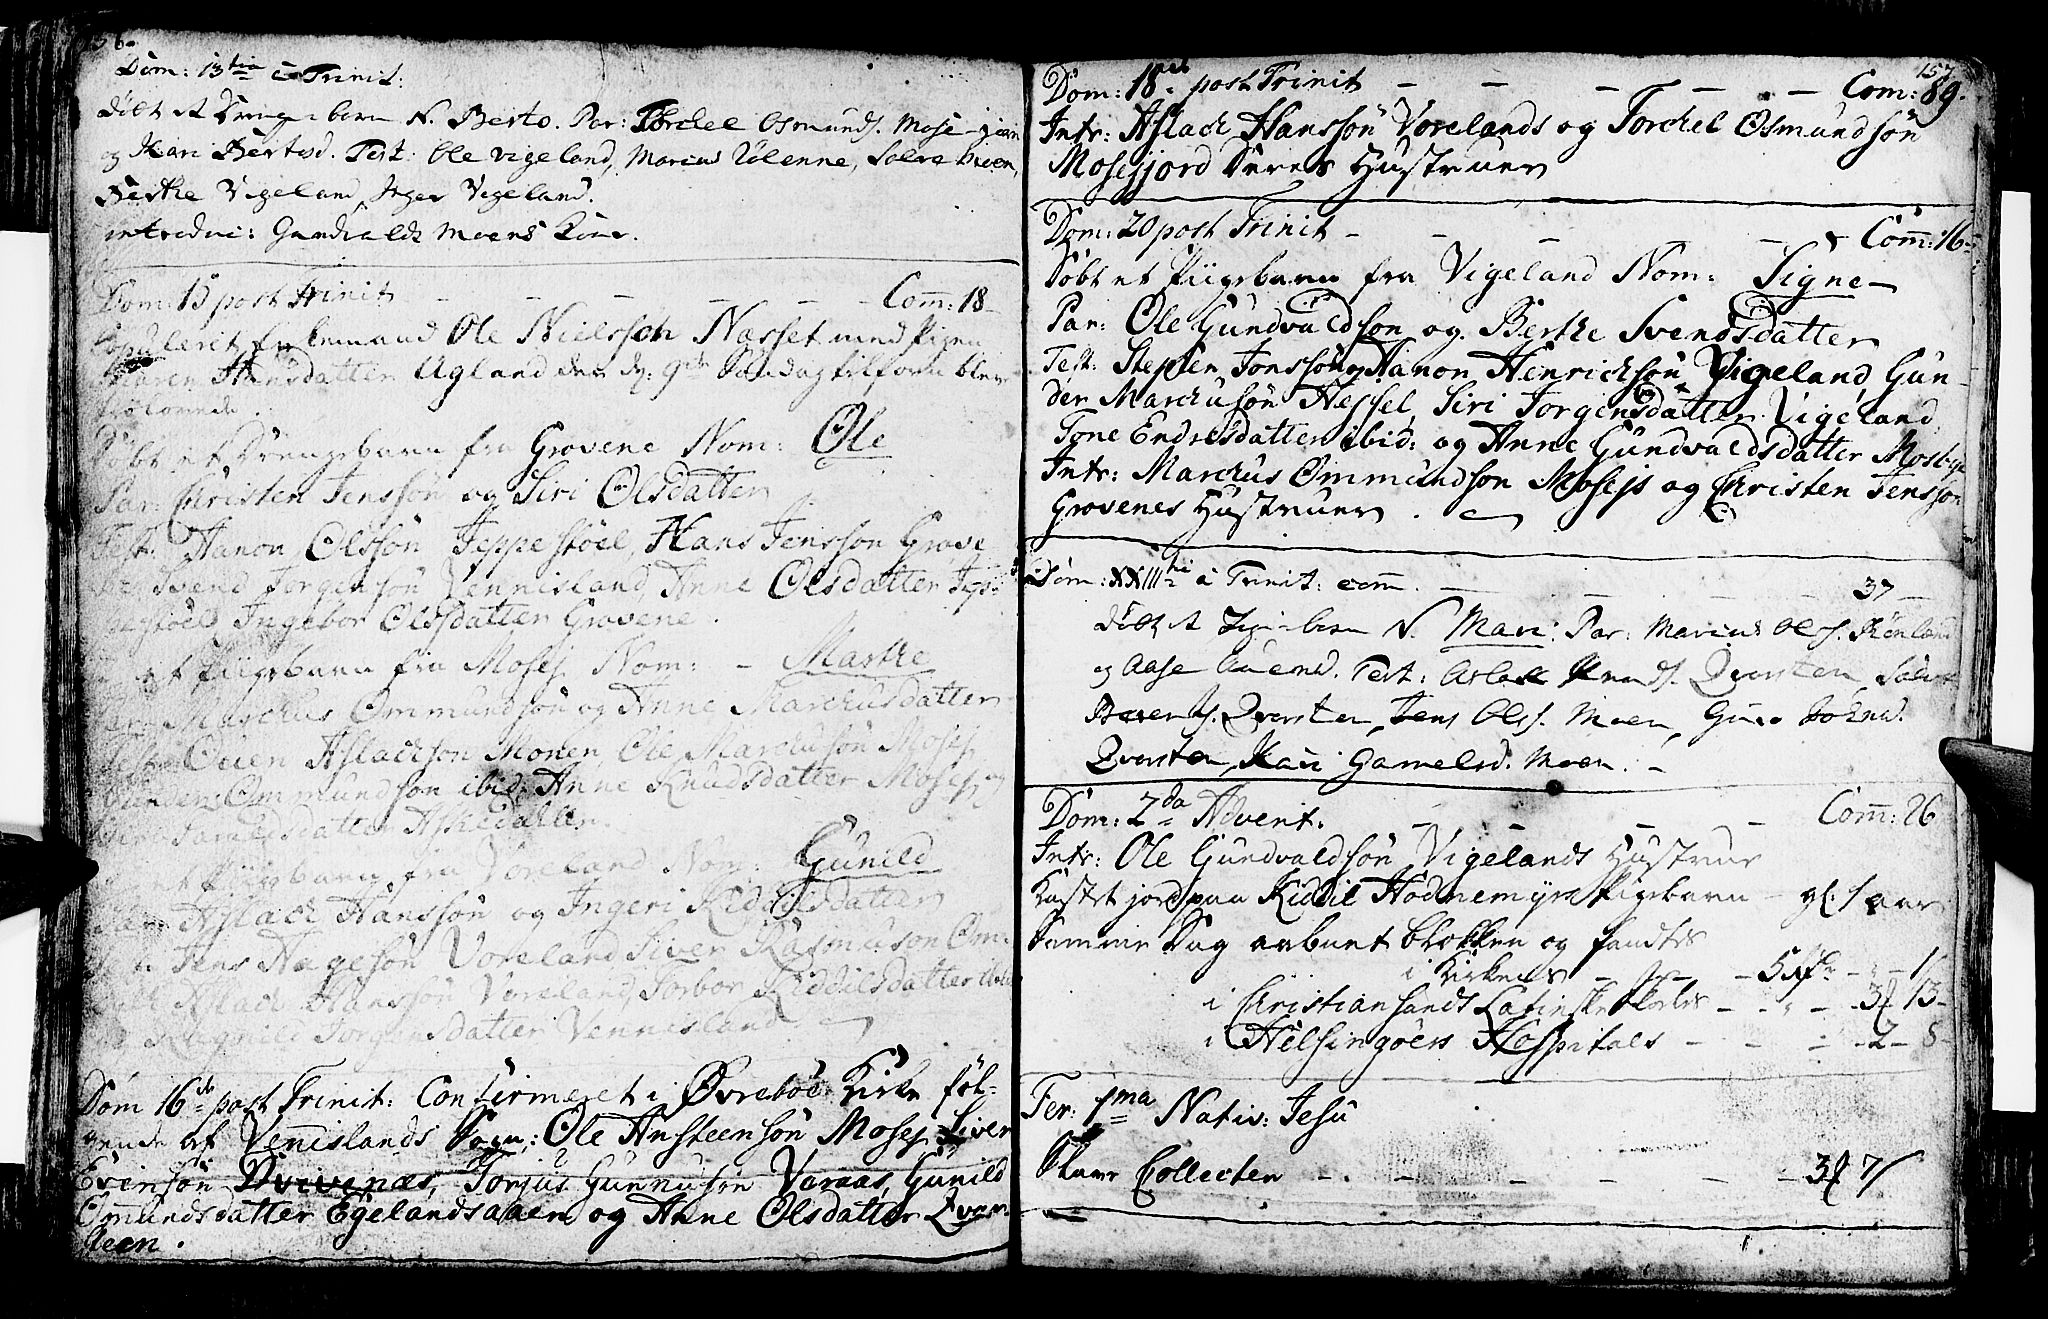 Dom: 13tia à Trinit:
døbt et Drenge barn N. Berto. Par: Torchel Osmunds. Mose-
og Kari Bertosd. Test: Ole Vigeland, Marcus
Berthe Vigeland, Inger Vigeland.
introduc: Gundvalds Moens Kone.
Dom: 15 post Trinit - - - - - Com: 18
Copuleret Enkemand Ole Nielssøn Nasset med Pigen
Maren Hansdatter Agland den dj: Søndag tilforn blev
trolovede.
Døbt et Drengebarn fra Grovene Nom: Ole
Par: Christen Jenssøn og Siri Olsdatter
Test: Hanon Olssøn Jeppestøel, Hans Jenssøn Grove
ne Svend Jørgensøn Vennisland, Anne Olsdatter Jep-
pestøel, Ingebor Olsdatter Grovene.
et Piigebarn fra Mosej Nom: - Marthe
Par: Marchus Ommundsøn og Anne Marchusdatter
Test: Ouen Aslachsøn Monen, Ole Marchusøn Mosej,
Gunder Ommundsøn ibid: Anne Knudsdatter Mosej, og
Siri
et Piigebarn fra Voreland Nom: Gunild
Par: Aslach Hanssøn og Ingeri Kiddilsdatter
Test: Jens Hagesøn Voreland Siver Rasmuson
Aslach Hanssøn Voreland, Torbor Kiddilsdatter ibid
og Ragnild Jørgensdatter Vennisland
Dom 16de post Trinit: Confirmeret i Øvrebøe Kirke føl-
gende af Vennislands Sogn: Ole Ansteensøn Mosej Siver
Evensøn Drivenæs, Torjus Gunnusøn Varaas, Gunild
Omundsdatter Egelandsaaen og Anne Olsdatter Qvar-
steen.
157
Dom: 18 post Trinit - - - - - Com: 89.
Intr: Aslach Hanssøn Vorelands og Torchel Osmundsøn
Mosefjord Deres Hustruer
Dom: 20 post Trinit - - - - Com: 16
Døbt et Piigebarn fra Vigeland Nom: Signe
Par: Ole Gundvaldsøn og Berthe Svendsdatter
Test: Stephen Jonssøn og Hanon Henrichsøn Vigeland, Gun-
der Marchusøn Hessel, Siri Jørgensdatter Vigeland,
Tone Endresdatter ibid: og Anne Gundvaldsdatter Mosbye
Intr: Marchus Ommundsøn Mosejs og Christen Jenssøn
Grovenes Hustruer.
Dom: XXIIItii à Trinit: com. - - - - 37
døbt et Pige-barn N. Mari. Par: Marcus Ols.
og Aase Test: Aslak Knuds. Qvarsten, Salve
Berens. Qvarsten, Jens Olss. Moen, Guro
Qvarsten, Kari Gamelsd. Moen.
Dom: 2da Advent. - - - - Com: 26
Intr: Ole Gundvaldsøn Vigelands Hustrue
Kastet jord paa Kiddil Hodnemyrs Pigebarn - gl: 1 aar
Samme Dag aabnet blokken og fandtes
i Kirkens - - - 5
i Christiansands Latinske Skoeles - - - 3 13
i Helsingøers Hospitals - - - 2 - 8
Fer: 1ma Nativ: Jesu
Slave Collecten - - - - 3 7